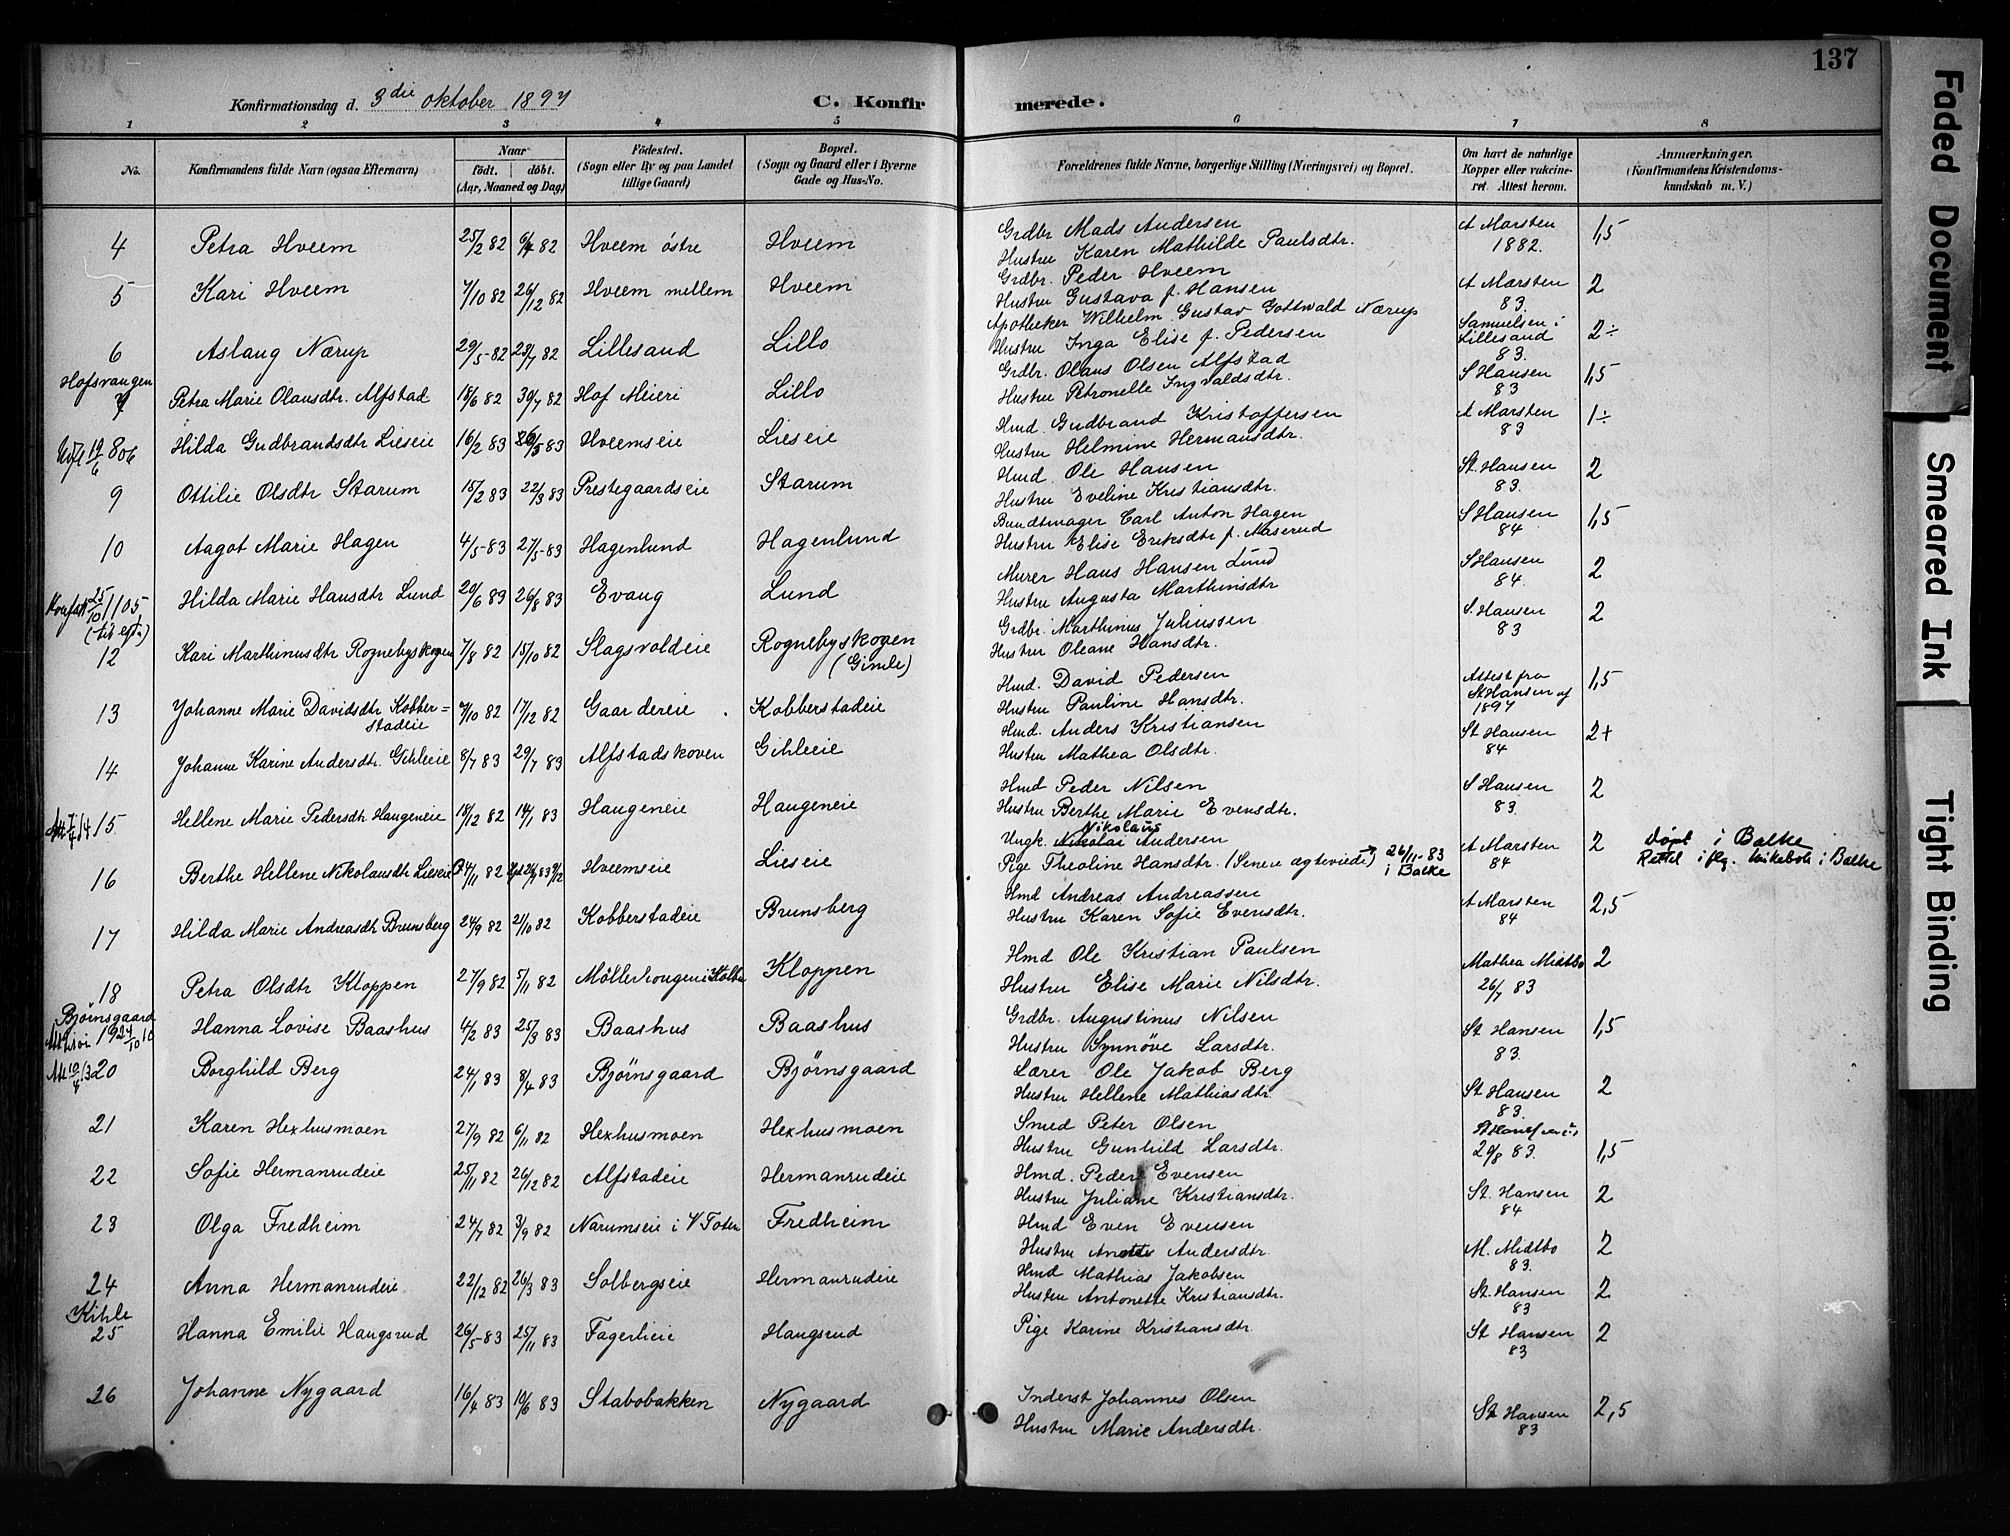 137
Konfirmationsdag d. 3die oktober 1897 C. Konfirmerede.
1 2 3 4 5 6 7 8
No. Konfirmandens fulde Navn (ogsaa Efternavn) Naar født. døbt. (Aar, Maaned og Dag) Fødested. (Sogn eller By og paa Landet tillige Gaard) Bopæl. (Sogn og Gaard eller i Byerne Gade og Hus-No. Forældrenes fulde Navne, borgerlige Stilling (Næringsvei) og Bopæl. Om havt de naturlige Kopper eller vakcineret. Attest herom. Anmærkninger. (Konfirmandens Kristendomskundskab m. V.)
4 Petra Hveem 25/2 82 9/4 82 Hveem östre Hveem Grdbr Mads Andersen A Marsten 1,5
Hustru Karen Mathilde Paulsdtr. 1882.
5 Kari Hveem 7/10 82 26/12 82 Hveem mellem Hveem Grdbr. Peder Hveem A Marsten 2
Hustru Gustava f. Hansen 83.
6 Aslaug Nærup 29/5-82 28/7 82 Lillesand Lillo Apotheker Wilhelm Gustav Gottwald Nærup Samuelsen i Lillesand 2÷
Hustru Inga Elise f. Pedersen 83.
Hofsvangen
7 Petra Marie Olausdtr. Alfstad 18/6 82 30/7 82 Hof Meieri Lillo Grdbr. Olaus Olsen Alfstad S Hansen 1,5
Hustru Petronelle Ingvaldsdtr. 83
19/6 06 8 Hilda Gudbrandsdtr Lieseie 16/2 83 26/5 83 Hveemseie Lieseie Hmd. Gudbrand Kristoffersen A Marsten 1÷
Hustru Helmine Hermansdtr. 83
9 Ottilie Olsdtr Starum 15/2 83 22/3 83 Prestegaardseie Starum Hmd. Ole Hansen St. Hansen 2
Hustru Eveline Kristiansdtr. 83.
10 Aagot Marie Hagen 4/5-83 27/5-83 Hagenlund Hagenlund Bundtmager Carl Anton Hagen S Hansen 1,5
Hustru Elise Eriksdtr f. Aaserud 84
25/10 05 11 Hilda Marie Hansdtr Lund 20/6 83 26/8 83 Evang Lund Murer Hans Hansen Lund S Hansen 2
Hustru Augusta Marthinsdtr 84.
12 Kari Marthinusdtr Rognebyskogen 7/8 82 15/10 82 Slagsvoldeie Rognebyskogen (Gimle) Grdbr. Marthinus Juliussen S. Hansen 2
Hustru Oleane Hansdtr. 83
13 Johanne Marie Davidsdtr Kobberstadeie 7/10 82 17/12 82 Gaardereie Kobberstadeie Hmd. David Pedersen Attest fra St Hansen af 1897 1,5
Hustru Pauline Hansdtr.
14 Johanne Karine Andersdtr. Gihleeie 8/7 83 29/7 83 Alfstadskoven Gihleeie Hmd. Anders Kristiansen St Hansen 2+
Hustru Mathea Olsdtr. 84
15 Hellene Marie Pedersdtr Haugeneie 18/12 82 14/1 83 Haugeneie Haugeneie Hmd Peder Nilsen S Hansen 2
Hustru Berthe Marie Evensdtr. 83.
16 Berthe Hellene Nikolausdtr Lieseie 24/11 82 Hveemseie Lieseie Ungk. Nikolai Nikolaus Andersen A Marsten 2 Döpt i Balke
Pige Theoline Hansdtr. (Senere ægteviede) → 26/11-83 i Balke 84 i Balke
17 Hilda Marie Andreasdtr Brunsberg 24/9 82 21/10 82 Kobberstadeie Brunsberg Hmd Andreas Andreassen A Marsten 2,5
Hustru Karen Sofie Evensdtr. 84
18 Petra Olsdtr Kloppen 27/9 82 5/11 82 Möllerhougen i Kolbu Kloppen Hmd Ole Kristian Paulsen Mathea Midtbo 2
Hustru Elise Marie Nilsdtr. 26/7 83
Bjørnsgaard
19 24/10 10 Hanna Lovise Baashus 4/2 83 25/3 83 Baashus Baashus Grdbr. Augustinus Nilsen St Hansen 1,5
Hustru Synnøve Larsdtr. 83.
20 Borghild Berg 24/1 83 8/4 83 Bjørnsgaard Bjørnsgaard Lærer Ole Jakob Berg St Hansen 2
Hustru Hellene Mathiasdtr. 83.
21 Karen Hexhusmoen 27/9 82 6/11 82 Hexhusmoen Hexhusmoen Smed Peter Olsen
Hustru Gunhild Larsdtr. 29/8 83. 1,5
22 Sofie Hermanrudeie 25/11 82 26/12 82 Alfstadeie Hermanrudeie Hmd. Peder Evensen
Hustru Juliane Kristiansdtr. St. Hansen 84 2
23 Olga Fredheim 24/7 82 3/9 82 Narumseie i V Toten Fredheim Hmd Even Evensen
Hustru Andersdtr. M. Midtbo 83. 2
24 Anna Hermanrudeie. 22/12 82 26/3 83 Solbergseie Hermanrudeie Hmd Mathias Jakobsen
Hustru Antonette Kristiansdtr. St. Hansen 83 2
Kihle
25 Hanna Emilie Haugsrud 26/5-83 25/11 83 Fagerlieie Haugsrud Pige Karine Kristiansdtr. St Hansen 83 2
26 Johanne Nygaard 16/4 83 10/6 83 Stabobakken Nygaard Inderst Johannes Olsen St Hansen 2,5
Hustru Marie Andersdtr. 83
Faded Document
Smeared Ink
Tight Binding